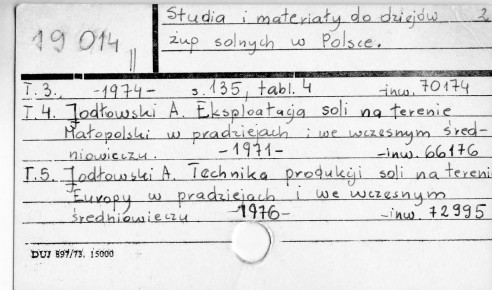 19 014 II
Studia i materiały do dziejów 2
żup solnych w Polsce.
T.3. -1974- s. 135, tabl. 4 -inw. 70174
T.4. Jodłowski A. Eksploatacja soli na terenie
Małopolski w pradziejach i we wczesnym śred-
niowieczu. -1971- -inw. 66176
T.5. Jodłowski A. Technika produkcji soli na tereni
Europy w pradziejach i we wczesnym
średniowieczu -1976- -inw. 72995
DUJ 897/73. 15000